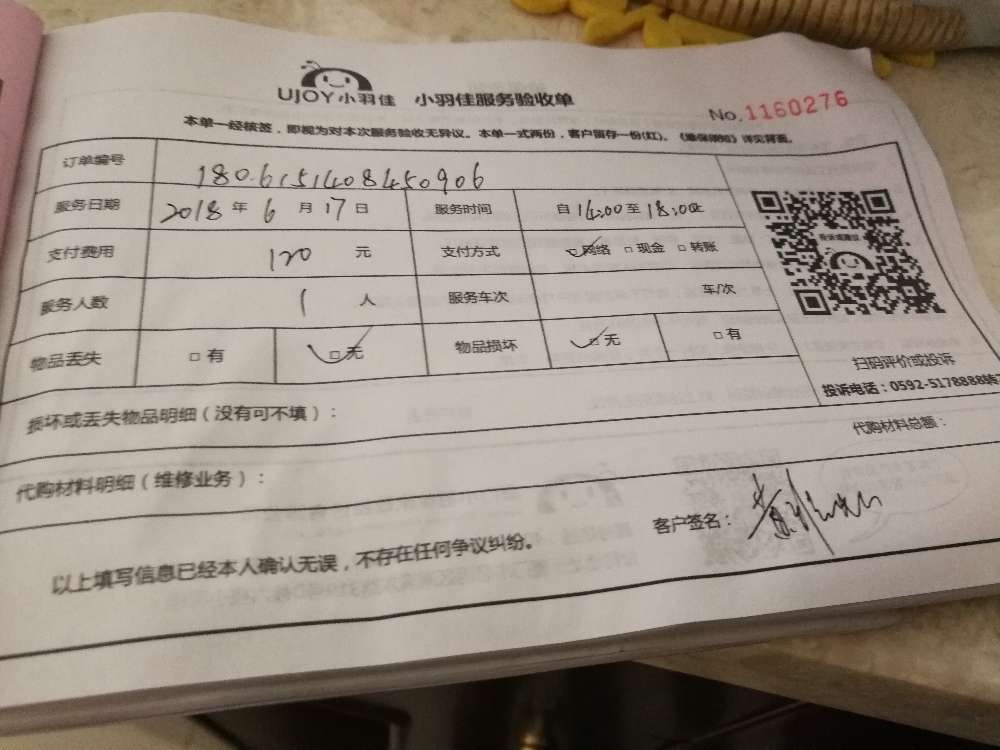 UJOY小羽佳 小羽佳服务验收单
No.1160276
本单一经核签，即视为对本次服务验收无异议。本单一式两份，客户留存一份(红)。《维保须知》详见背面。
订单编号 1806151408450906
服务日期 2018 年 6 月 17 日 服务时间 自 14:00 至 18:00
支付费用 120 元 支付方式 网络 □ 现金 □ 转账
服务人数 1 人 服务车次 车/次
物品丢失 □ 有 □ 无 物品损坏 □ 无 □ 有
扫码评价或投诉
投诉电话：0592-5178888转
损坏或丢失物品明细（没有可不填）：
代购材料明细（维修业务）： 代购材料总额：
以上填写信息已经本人确认无误，不存在任何争议纠纷。 客户签名：